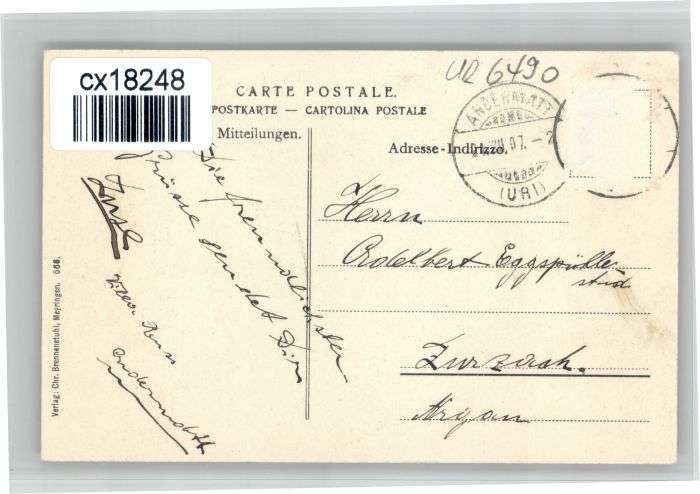 cx18248
UR 6490
CARTE POSTALE.
POSTKARTE — CARTOLINA POSTALE
Mitteilungen.
Adresse-Indirizzo.
ANDERMATT
VIII.07.-2
(URI)
Die freundlichsten
Grüsse sendet Dir
Andermatt
Herrn
Adelbert Eggspühler
stud.
Zurzach.
Argau
Verlag: Chr. Brennenstuhl, Meyringen. 566.